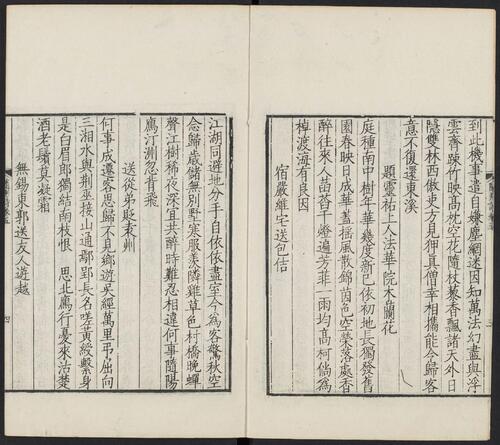 到此機事遣自嫌塵網迷因知萬法幻盡與浮
雲齊踈竹映高枕空花隨杖藜香飄諸天外日
隱雙林西傲吏方見狎真僧幸相攜能令歸客
意不復還東溪
題靈祐上人法華院木蘭花
庭種南中樹年華幾度新已依初地長獨發舊
園春映日成華蓋搖風散錦茵色空榮落處香
醉往來人菡萏千燈遍芳菲一雨均高柯儻為
棹渡海有良因
宿嚴維宅送包佶
江湖同避地分手自依依盡室今為客驚秋空
念歸歲儲無別墅寒服羨隣雞草色村橋晚蟬
聲江樹稀夜深宜共醉時難忍相違何事隨陽
鴈汀洲忽背飛
送從弟貶袁州
何事成遷客思歸不見鄉遊吳經萬里弔屈向
三湘水與荊巫接山通鄢郢長名羞黃綬繫身
是白眉郎獨結南枝恨 思北鴈行憂來沽楚
酒老鬢莫凝霜
無錫東郭送友人遊越
四